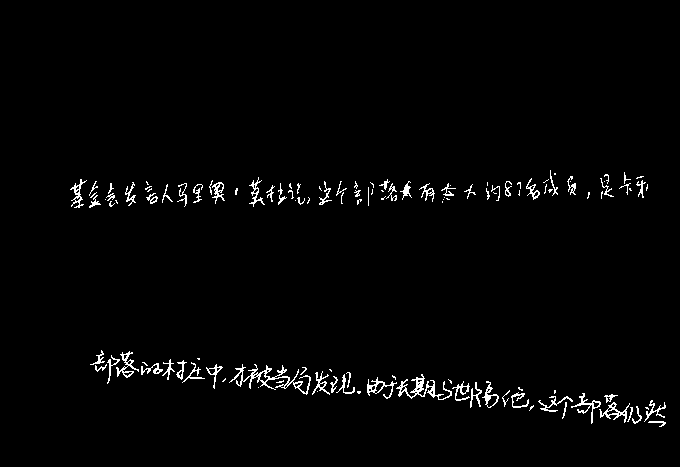 基金会发言人马里奥·莫杜说,这个部落共有大约87名成员,是卡亚
部落的村庄中,才被当局发现.由于长期与世隔绝,这个部落仍然